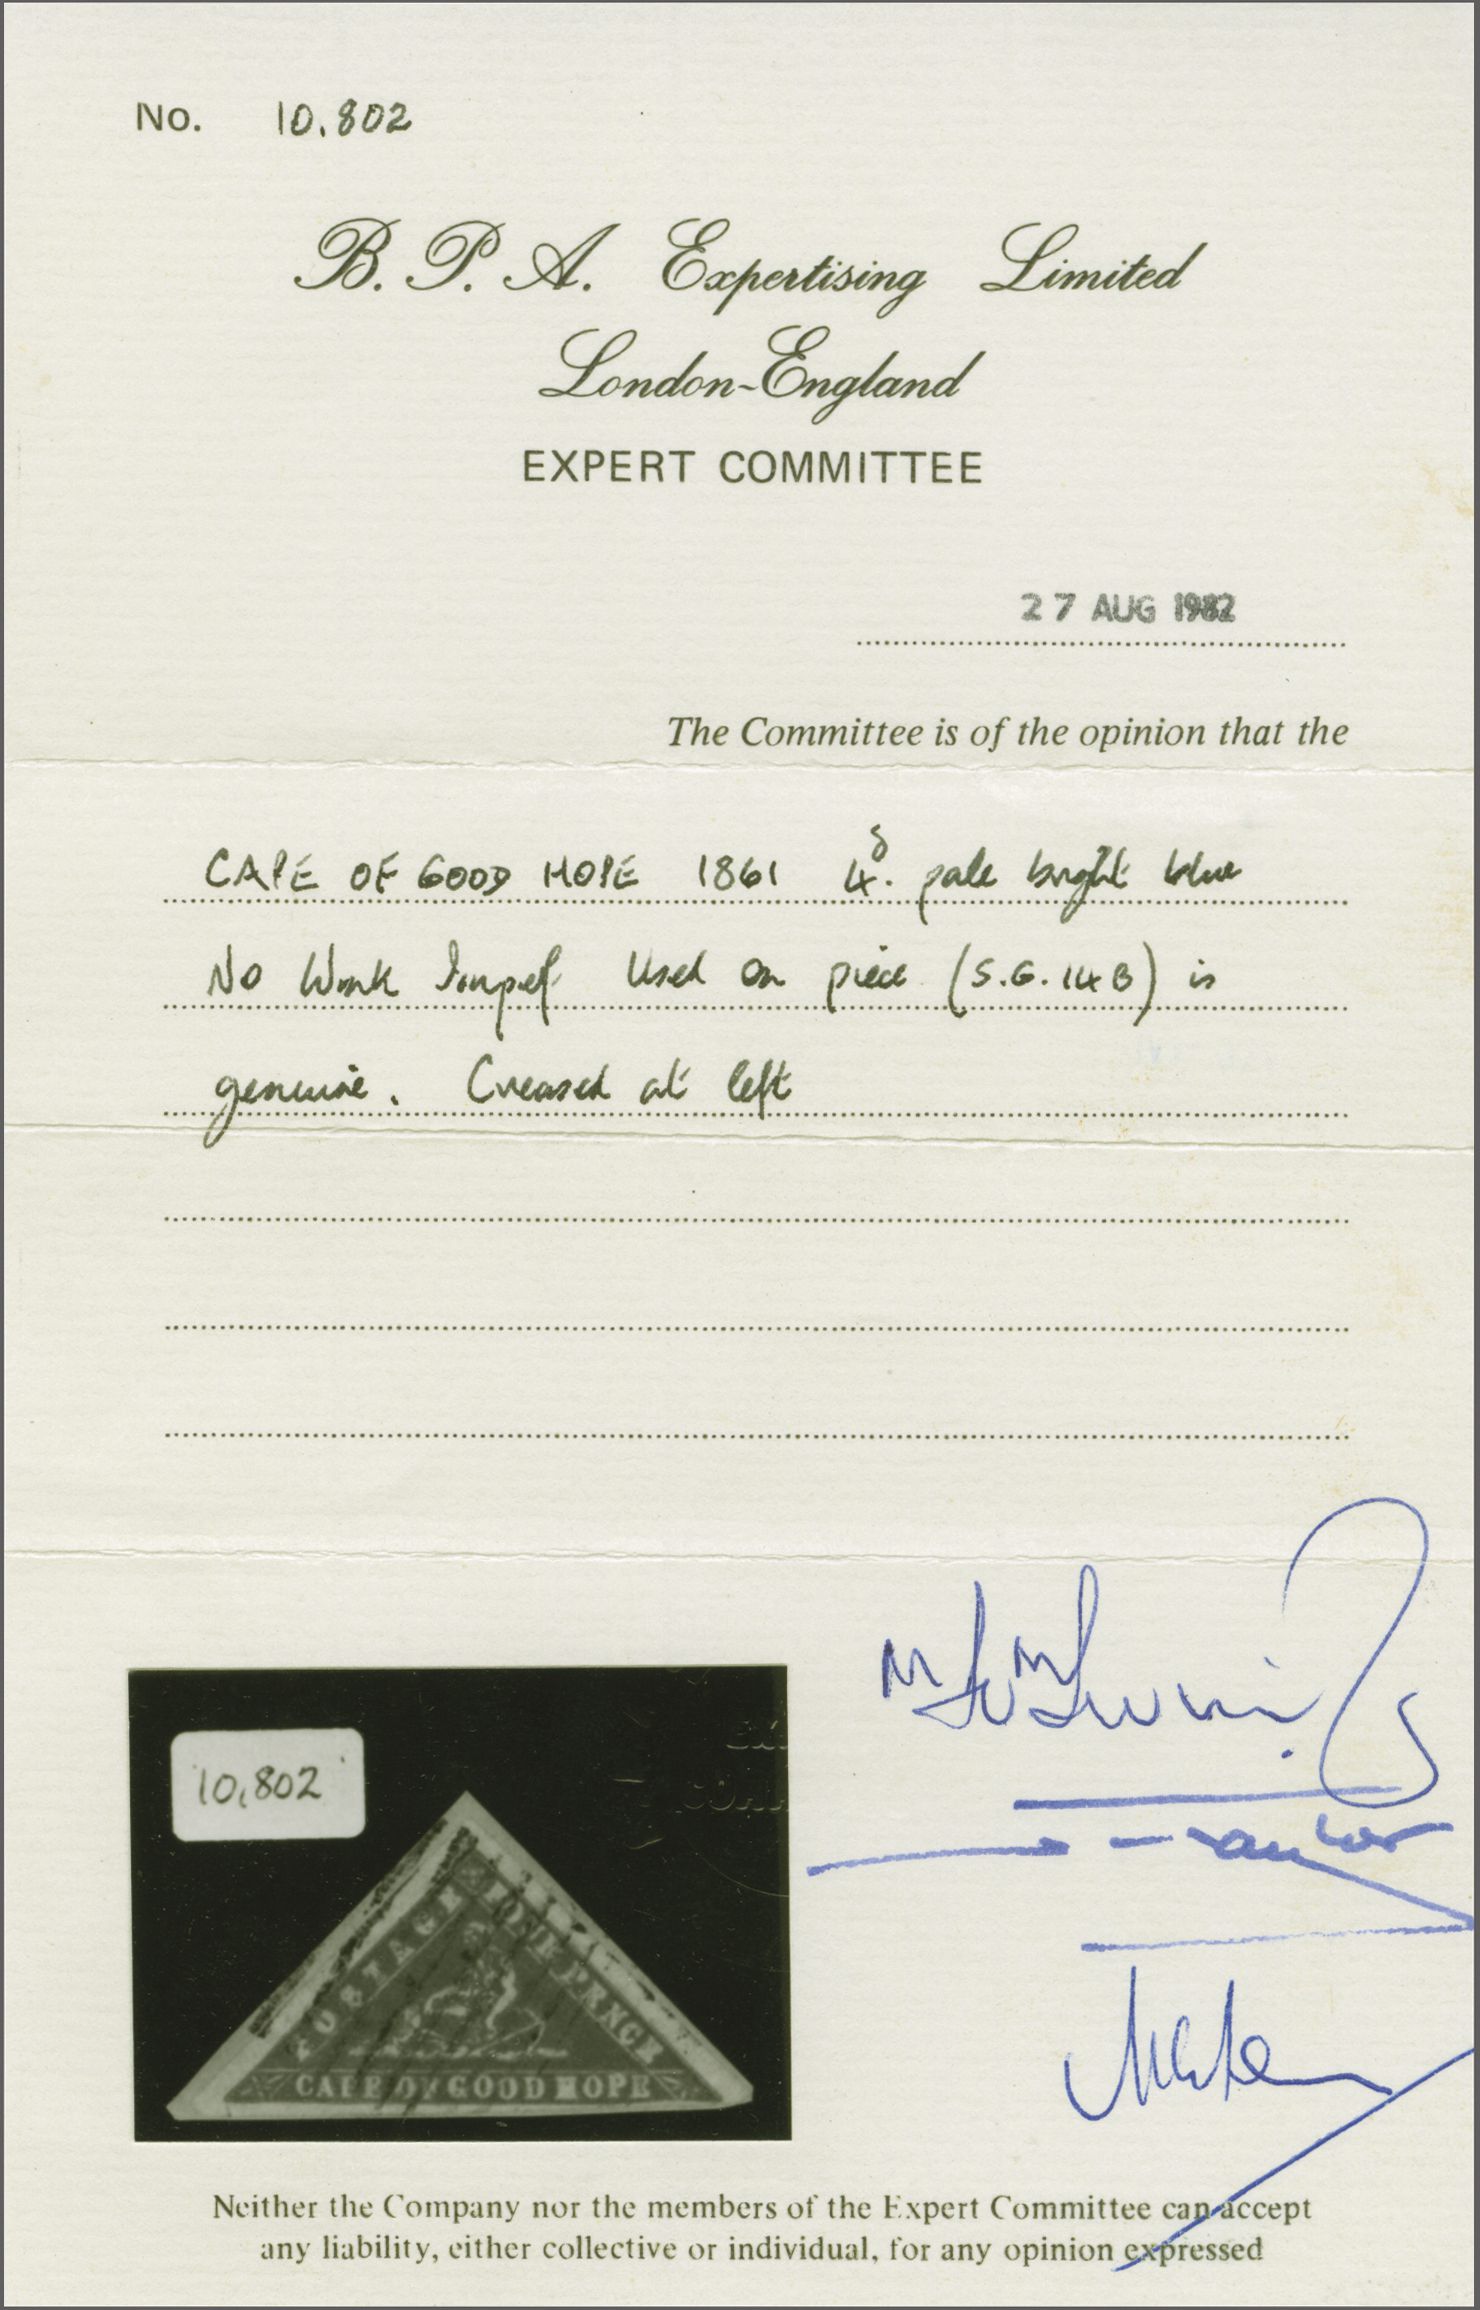 No. 10,802
B. P. A. Expertising Limited
London-England
EXPERT COMMITTEE
27 AUG 1982
The Committee is of the opinion that the
CAPE OF GOOD HOPE 1861 4d. pale bright blue
No Wmk Imperf Used on piece (S.G. 14B) is
genuine. Creased at left
10,802
POSTAGE
FOUR PENCE
CAPE OF GOOD HOPE
Neither the Company nor the members of the Expert Committee can accept
any liability, either collective or individual, for any opinion expressed